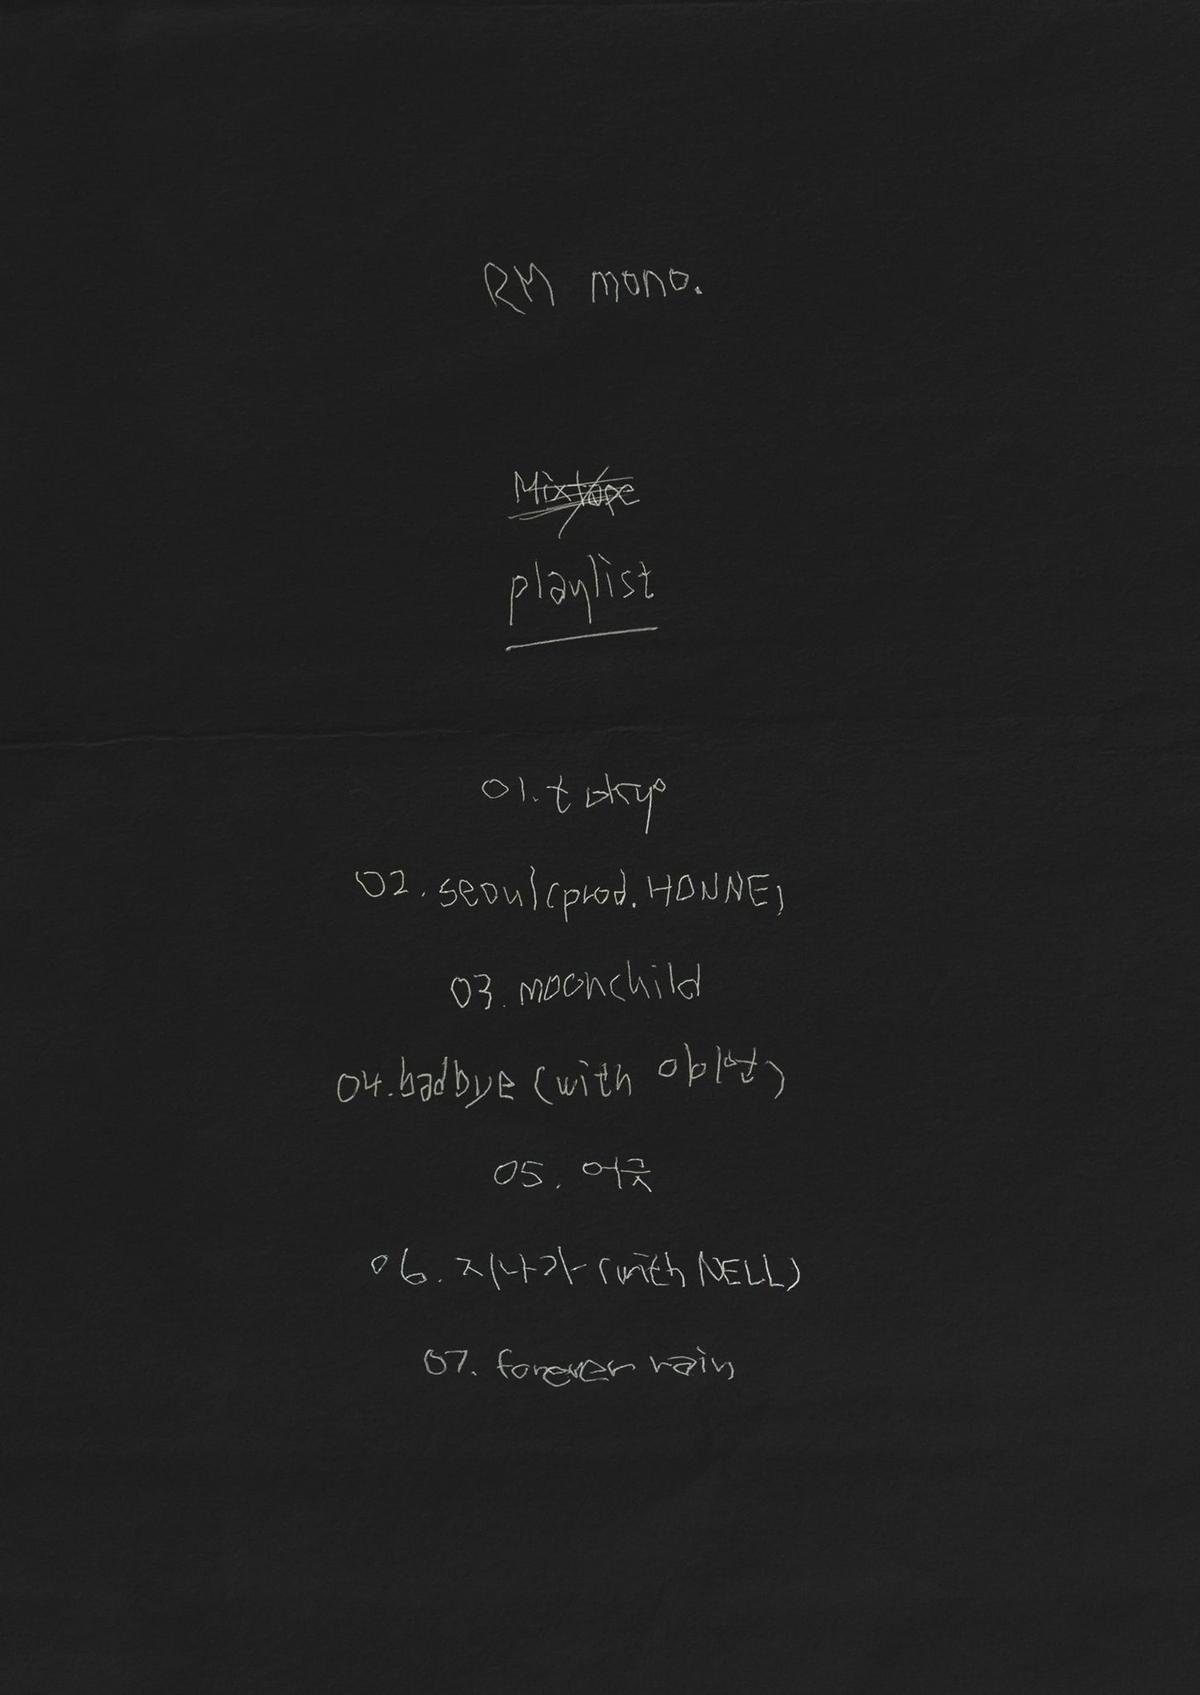 RM mono.
Mixtape
playlist
01. tokyo
02. seoul (prod. HONNE)
03. moonchild
04. badbye (with 이이언)
05. 어긋
06. 지나가 (with NELL)
07. forever rain